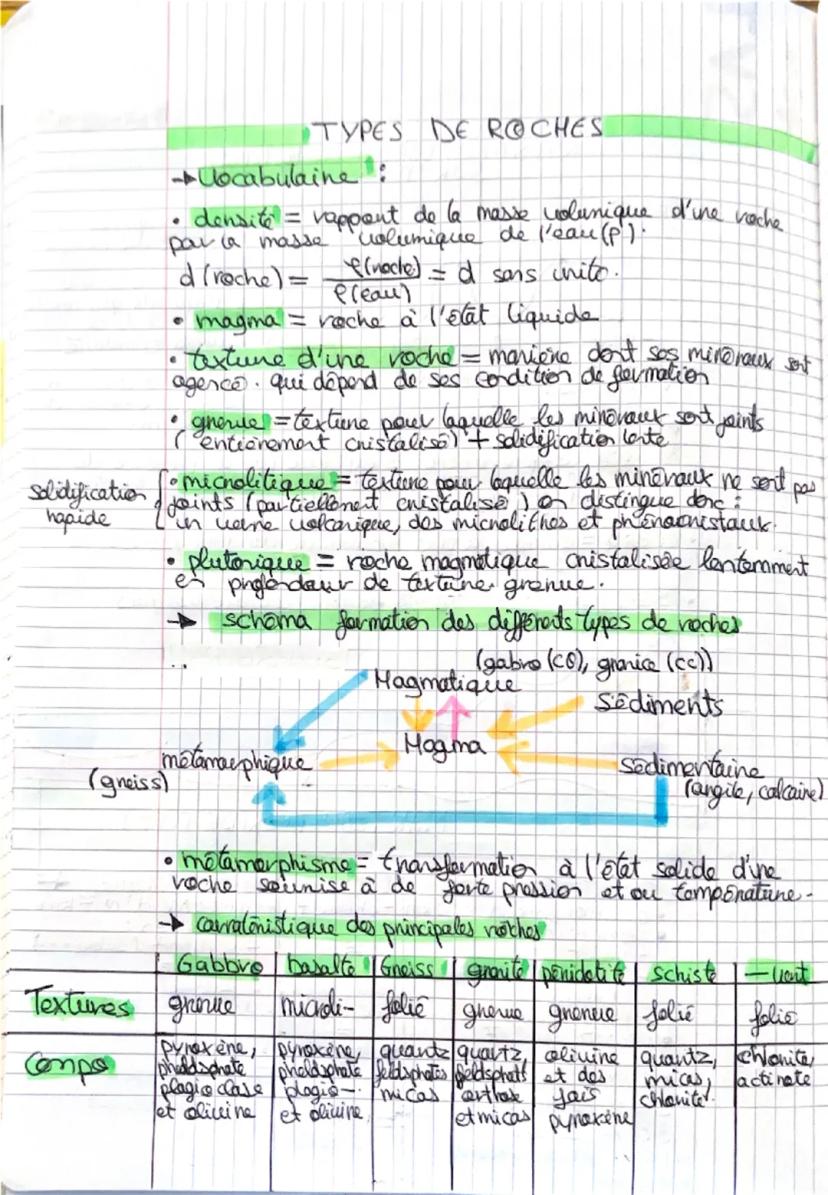 TYPES DE ROCHES
→ Vocabulaire :
• densité = rapport de la masse volumique d'une roche
par la masse volumique de l'eau (ρ).
d (roche) = ρ(roche) / ρ(eau) = d sans unité.
• magma = roche à l'état liquide
• texture d'une roche = manière dont ses minéraux sont
agencé. qui dépend de ses condition de formation
• grenue = texture pour laquelle les minéraux sont joints
(entièrement cristalisé) + solidification lente
solidification
rapide
• microlitique = texture pour laquelle les minéraux ne sont pas
joints (partiellement cristalisé) on distingue donc :
un verre volcanique, des microlithes et phénocristaux.
• plutonique = roche magmatique cristalisée lentemment
en profondeur de texture grenue.
→ schéma formation des différents types de roches
(gabro (CO), granice (CC))
Magmatique
Sédiments
Magma
métamorphique
(gneiss)
sédimentaire
(argile, calcaire)
• métamorphisme = transformation à l'état solide d'une
roche soumise à de forte pression et ou température.
→ carratéristique des principales roches
Gabbro basalte Gneiss granite péridotite schiste — vert
Textures grenue microli- folié grenue grenue folié folié
Compo
pyroxène, pyroxène, quartz quartz, olivine quartz, chlorite,
pheldsphate pheldsphate feldsphates feldsphats et des micas, actinote
plagioclase plagio- micas orthose fois chlorite
et olivine et olivine et micas pyroxène